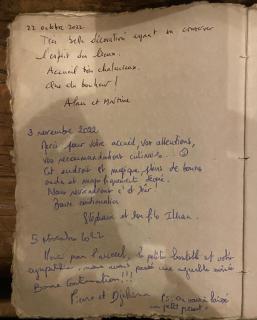 22 octobre 2022
Très belle décoration ayant su conserver
l'esprit du lieu.
Accueil très chaleureux.
Que du bonheur !
Alan et Martine
3 novembre 2022
Merci pour votre accueil, vos attentions,
vos recommandations culinaires...
Cet endroit est magique, pleins de bonnes
ondes et magnifiquement décoré.
Nous reviendrons c'est sûr !
Bonne continuation
Stéphanie et son fils
5 novembre 2022
Merci pour l'accueil, la petite bouteille et votre
sympathie, nous avons passé une agréable soirée
Bonne continuation !!!
Pierre et
Ps: on vous a laissé
un petit présent.